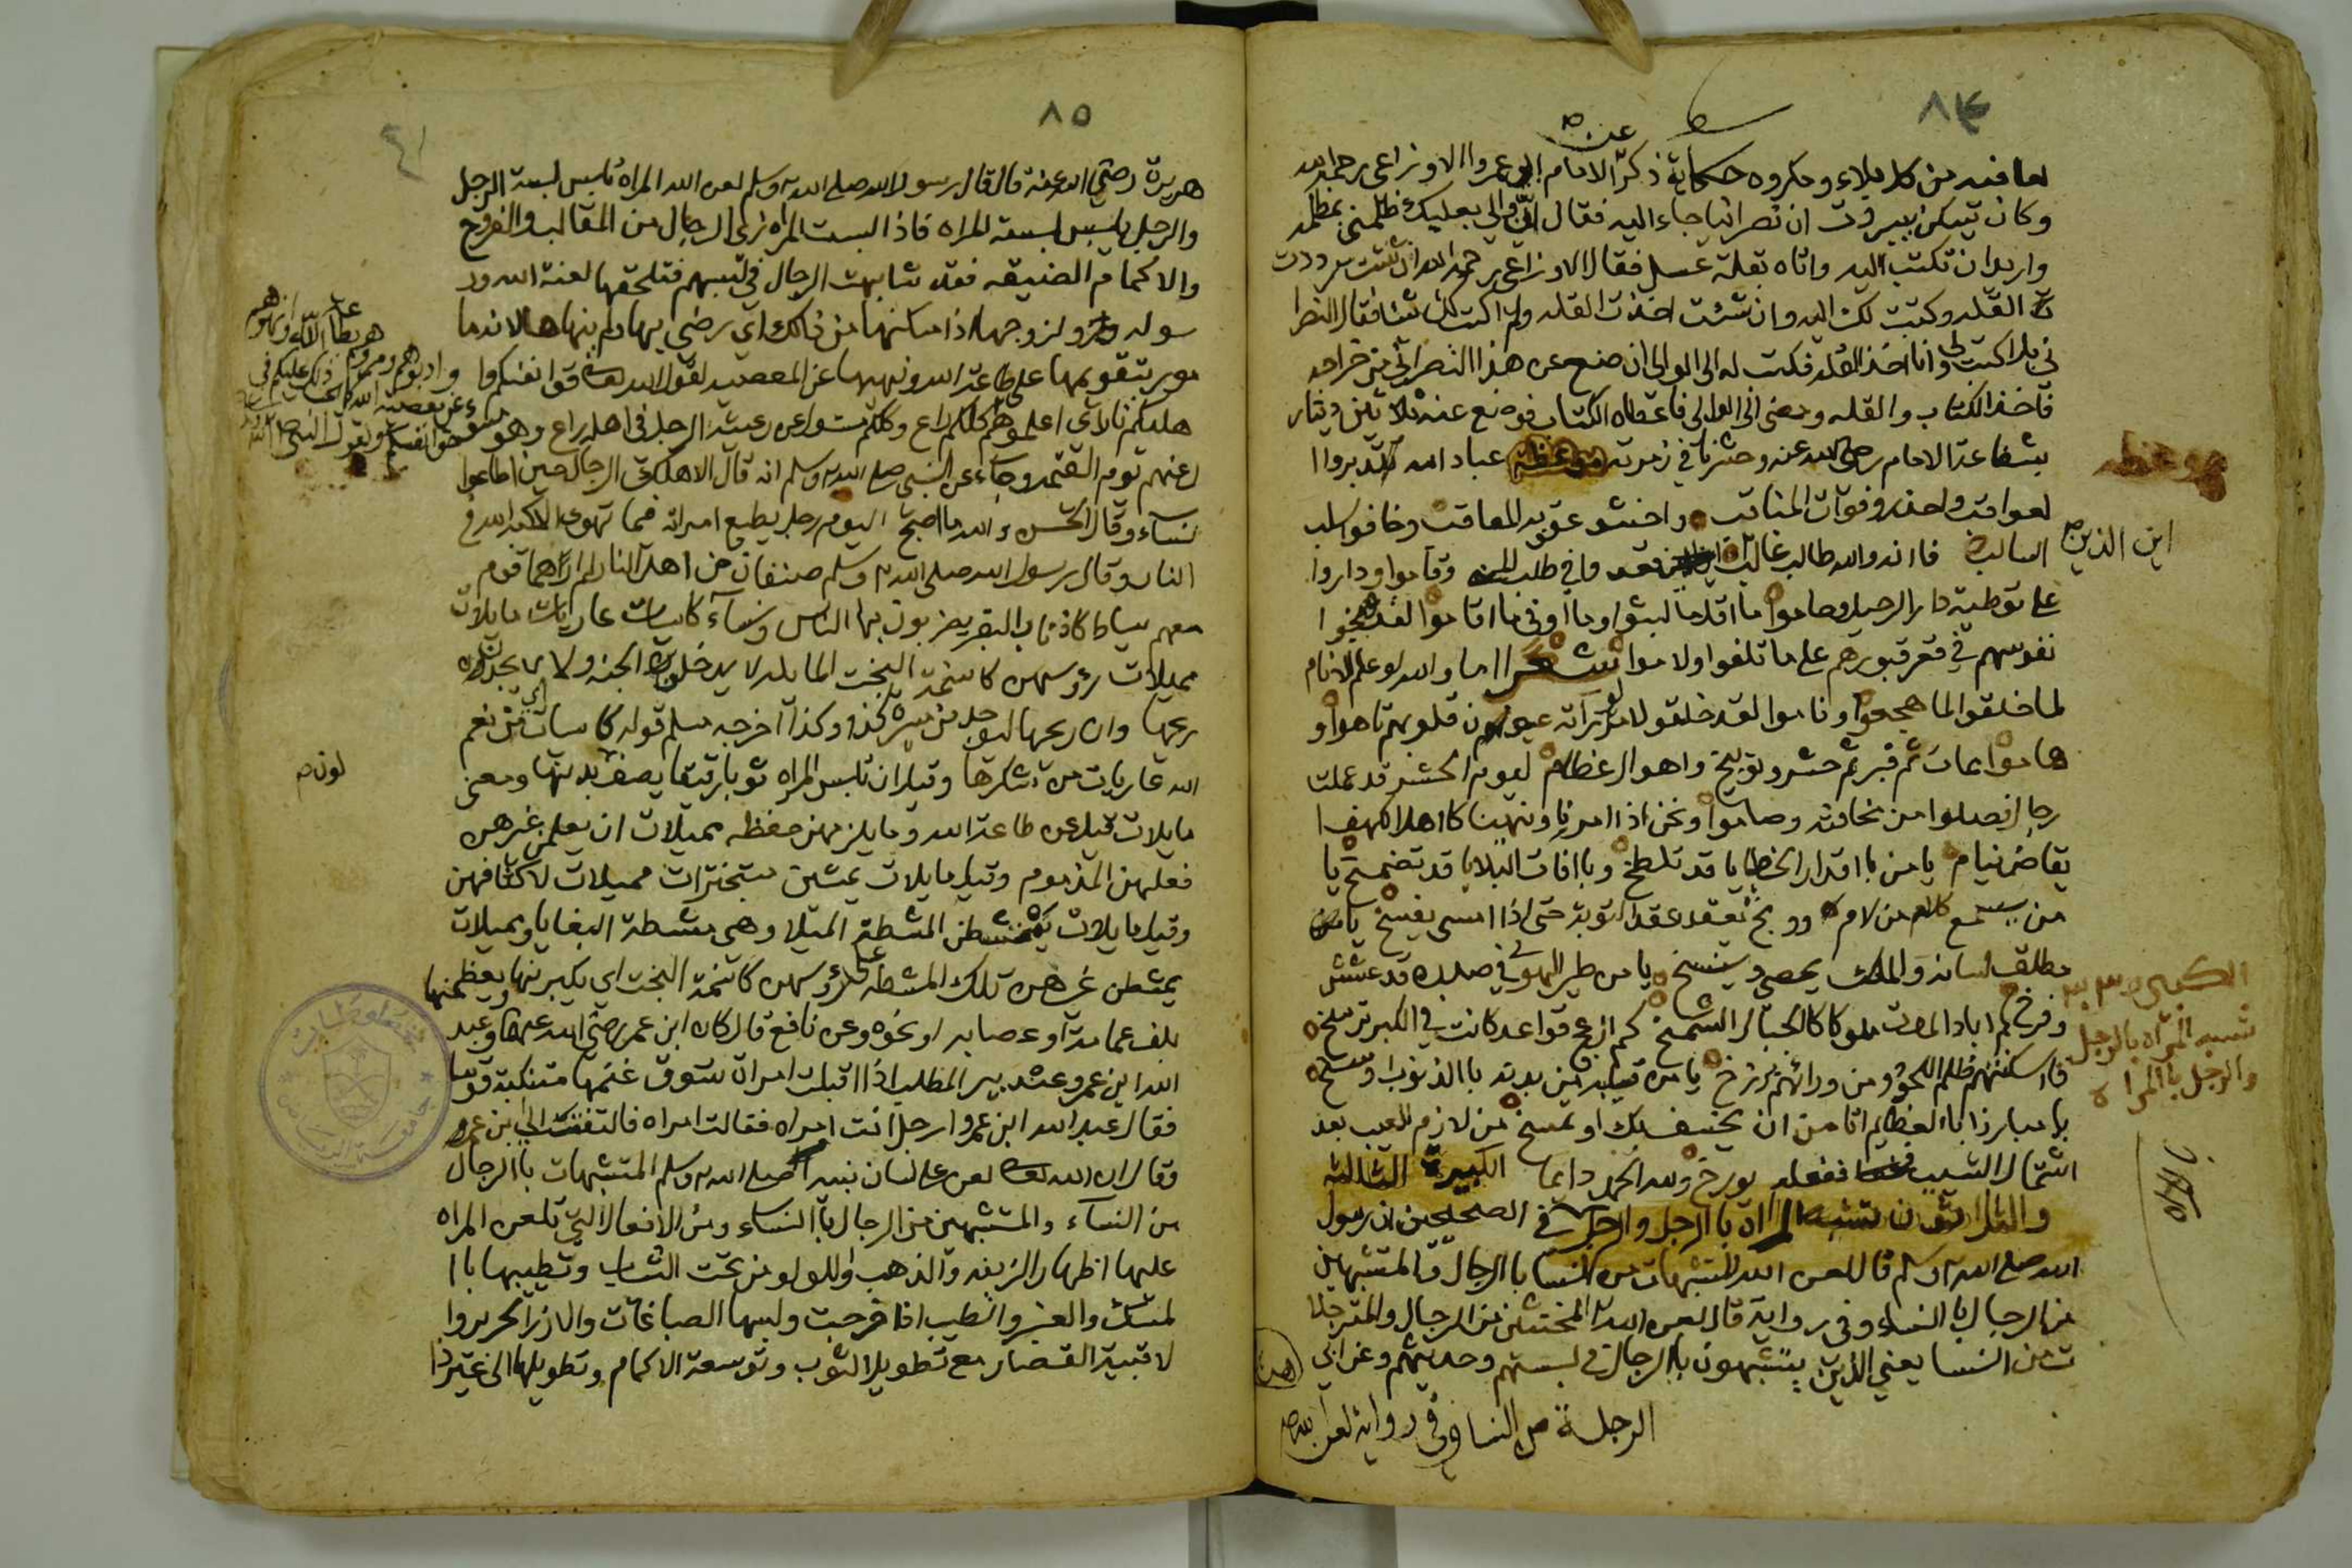 ٨٤
لعافيه من كل بلاء ومكروه حكاية ذكر عن الامام ابو عمروا الاوزاعي رحمه الله
وكان يسكن ببيروت ان نصرانيا جاء اليه فقال ان والي بعلبك ظلمني بمظلمه
واريد ان تكتب اليه واتاه بقلة عسل فقال الاوزاعي رحمه الله ان شئت رددت
القله وكتبت لك اليه وان شئت اخذت القله ولم اكتب لك شيئا فقال النصرا
ني بل اكتب لي وانا اخذ القله فكتب له الى الوالي ان ضع عن هذا النصراني من خراجه
فاخذ الكتاب والقله ومضى الى الوالي فاعطاه الكتاب فوضع عنه ثلاثين دينار
بشفاعة الامام رضي الله عنه وحشرنا في زمرته موعظة عباد الله تدبروا
موعظه
لعواقب واحذروا فوات المناقب واخشو عقوبه المعاقب وخافو سلب
السالب فانه والله طالب غالب اين الذين قعدوا في طلب المنى وقاموا وداروا
على توطية دار الرحيل وحاموا ما اقل ما لبثوا وما اوفى ما اقاموا لقد وبخوا
نفوسهم في قعر قبورهم على ما تلفوا ولاموا شعر اما والله لو علم الانام
لما خلقوا لما هجعوا وناموا لقد خلقوا لامر لو رآته عيون قلوبهم تاهوا و
هاموا ممات ثم قبر ثم حشر وتوبيخ واهوال عظام ليوم الحشر قد عملت
رجال فصلوا من مخافته وصاموا ونحن اذا امرنا ونهينا كاهل الكهف ا
يقاض نيام يا من باقدار الخطايا قد تلطخ وبافات البلايا قد تضمخ يا
من سمع كلام من لام ووبخ يعقد عقد التوبة حتى اذا امسى يفسخ يا من
مطلق لسانه والملك يحصي وينسخ يا من طير الهوى في صدره قد عشش
وفرخ كم اباد الموت ملوكا كالجبال الشمخ كم ازعج قواعد كانت في الكبر ترسخ
الكبيره
تشبه المراه بالرجل
والرجل بالمراه
فاسكنهم ظلم اللحود ومن ورائهم برزخ يا من قلبه من بدنه بالذنوب اوسخ
يا مبارزا بالعظايم اتامن ان يخسف بك او تمسخ من لازم العيب بعد
اشتمال الشيب ففعله يورخ ولله الحمد دايما الكبيرة الثالثة
والثلاثون تشبه المراة بالرجل والرجل في الصحيحين ان رسول
الله صلى الله وسلم قال لعن الله المتشبهات من النسا بالرجال والمتشبهين
من الرجال بالنساء وفي رواية قال لعن الله المخنثين من الرجال والمترجلا
ت من النسا يعني الذين يتشبهون بالرجال في لبستهم وحديثهم وعن ابي
الرجلة من النسا وفي رواية لعن الله
٨٥
هريرة رضي الله عنه قال قال رسول الله صلى الله وسلم لعن الله المراه تلبس لبسة الرجل
والرجل يلبس لبسة المراه فاذا لبست المراه زي الرجال من المقالب والفرج
والاكمام الضيقه فقد شابهت الرجال في لبسهم فتلحقها لعنة الله ور
سوله ولزوجها اذا امكنها من ذلك اي رضي بها ولم ينهاها لانه ما
مور بتقويمها على طاعة الله ونهيها عن المعصيه لقول الله تعالى قوا انفسكم وا
هليكم نارا اي
كلكم راع وكلكم مسئول عن رعيته الرجل في اهله راع وهو مسؤ
ل عنهم يوم القيمه وجاء عن النبي صلى الله وسلم انه قال الا هلكت الرجال حين اطاعوا
نساء وقال الحسن والله ما اصبح اليوم رجل يطيع امراته فيما تهوى الا اكبه الله في
النار وقال رسول الله صلى الله وسلم صنفان من اهل النار لم ارهما قوم
معهم سياط كاذناب البقر يضربون بها الناس ونساء كاسيات عاريات مايلات
مميلات رؤسهن كاسنمة البخت المايله لا يدخلون الجنه ولا يجدن
ريحها وان ريحها ليوجد من مسيرة كذا وكذا اخرجه مسلم قوله كاسيات اي من نعم
الله عاريات من شكرها وقيل ان تلبس المراه ثوبا رقيقا يصف لون بدنها ومعنى
مايلات قيل عن طاعة الله وما يلزمهن حفظه مميلات ان يعلمن غيرهن
فعلهن المذموم وقيل مايلات يمشين متبخترات مميلات لاكتافهن
وقيل مايلات يمتشطن المشطة الميلا وهي مشطة البغايا ومميلات
يمشطن غيرهن تلك المشطه على رؤسهن كاسنمة البخت اي يكبرنها ويعظمنها
بلف عمامة او عصابه او نحوه وعن نافع قال كان ابن عمر رضي الله عنهما وعبد
الله ابن عمرو عند بير المطلب اذا اقبلت امراة تسوق غنمها متنكبة قوسا
فقال عبد الله ابن عمرو ارجل انت ام امراه فقالت امراه فالتفت الى ابن عمرو
وقال ان الله تعالى لعن على لسان نبيه صلى الله وسلم المتشبهات بالرجال
من النساء والمتشبهين من الرجال بالنساء ومن الافعال التي تلعن المراه
عليها اظهار الزينه والذهب واللولو من تحت الثياب وتطيبها با
لمسك والعنبر والطيب اذا خرجت ولبسها الصباغات والازر الحرير وا
لاقبية القصار مع تطويل الثوب وتوسعة الاكمام وتطويلها الى غير ذا